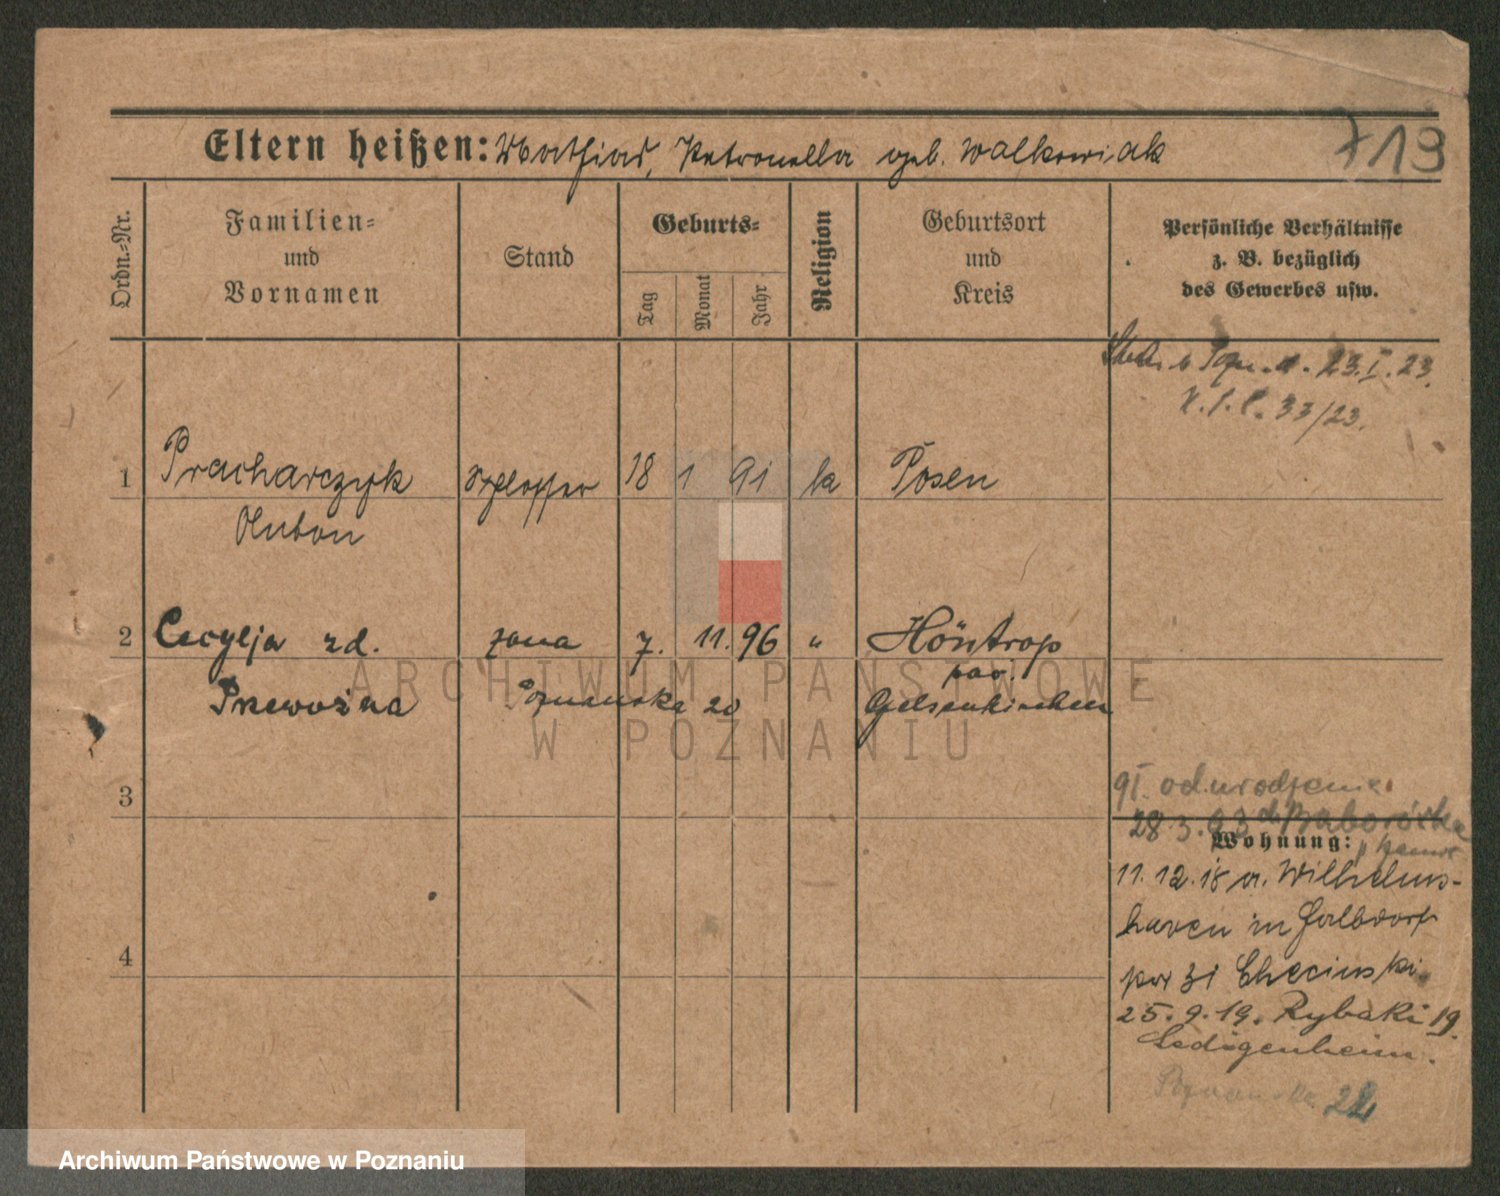 Eltern heißen: Mathias, Petronella geb. Walkowiak
713
Ordn.-Nr.
Familien-
und
Vornamen
Stand
Geburts-
Tag
Monat
Jahr
Religion
Geburtsort
und
Kreis
Persönliche Verhältnisse
z. B. bezüglich
des Gewerbes usw.
23.I.23.
33/23.
1 Pracharczyk Schlosser 18 1 91 ka Posen
Anton
2 Cecylja zd. żona 7. 11. 96 " Höntrop
pow.
Przewoźna Poznańska 20 Gelsenkirchen
3
od urodzenia
28.3.93
Wohnung:
11.12.18 v. Wilhelms-
haven in
4
bei Checinski
25.9.19. Rybaki 19.
Ledigenheim.
Poznańska 22
ARCHIWUM PAŃSTWOWE
W POZNANIU
Archiwum Państwowe w Poznaniu